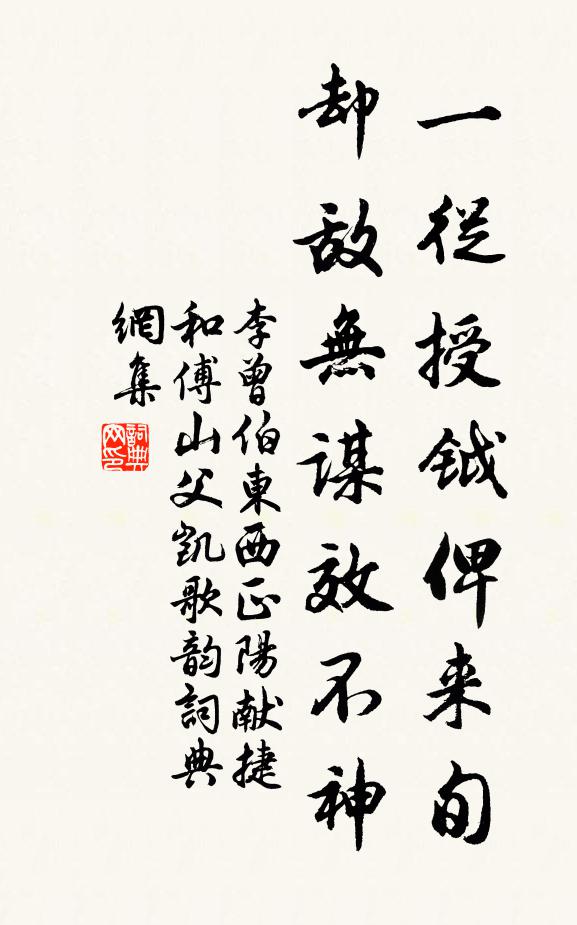 一從授鉞俾来旬
却敵無謀效不神
李曾伯東西正陽献捷
和傅山父凱歌韵詞典
網集
詞典網印